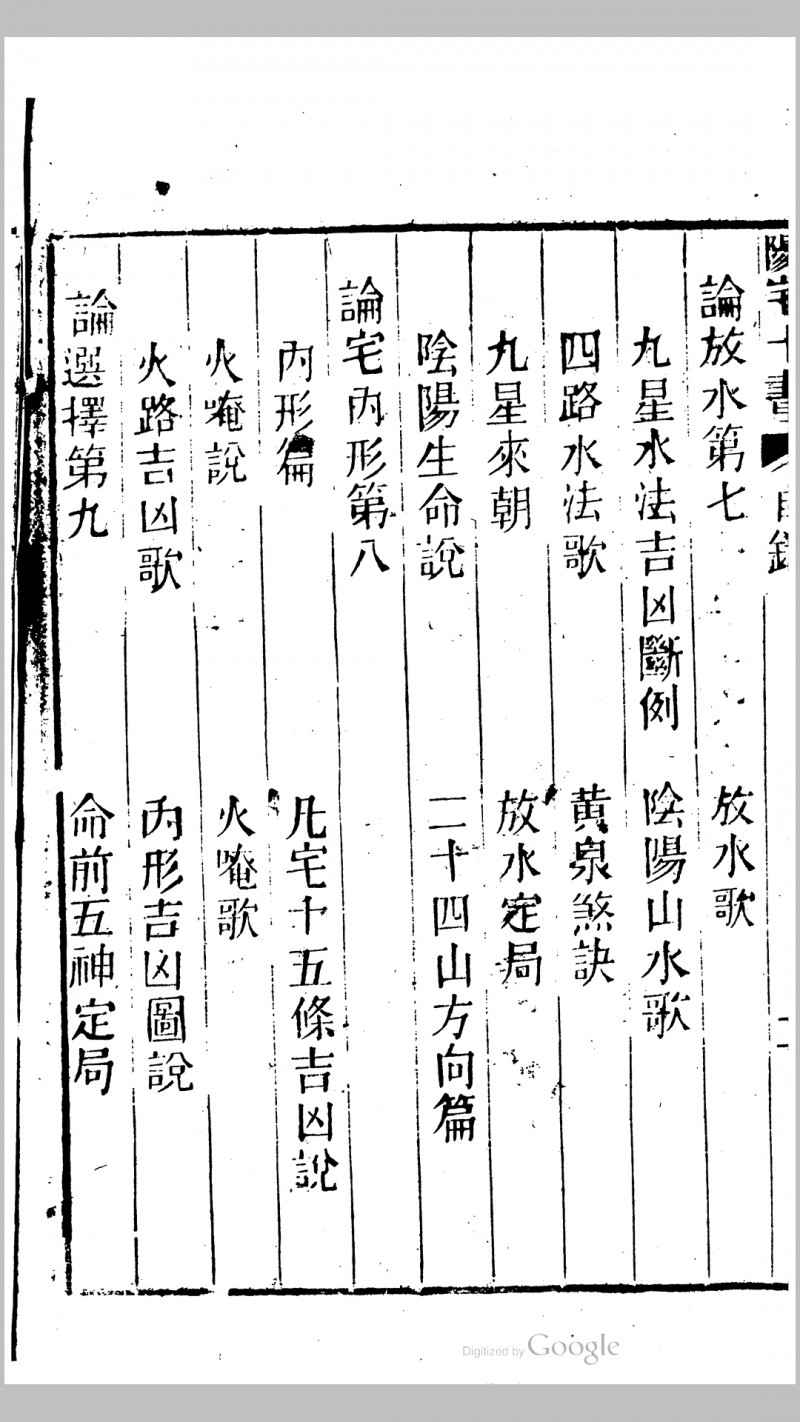 陽宅十書 目錄 二
論放水第七 放水歌
九星水法吉凶斷例 陰陽山水歌
四路水法歌 黃泉煞訣
九星來朝 放水定局
陰陽生命說 二十四山方向篇
論宅內形第八
內形篇 凡宅十五條吉凶說
火唵說 火唵歌
火路吉凶歌 內形吉凶圖說
論選擇第九 命前五神定局
Digitized by Google